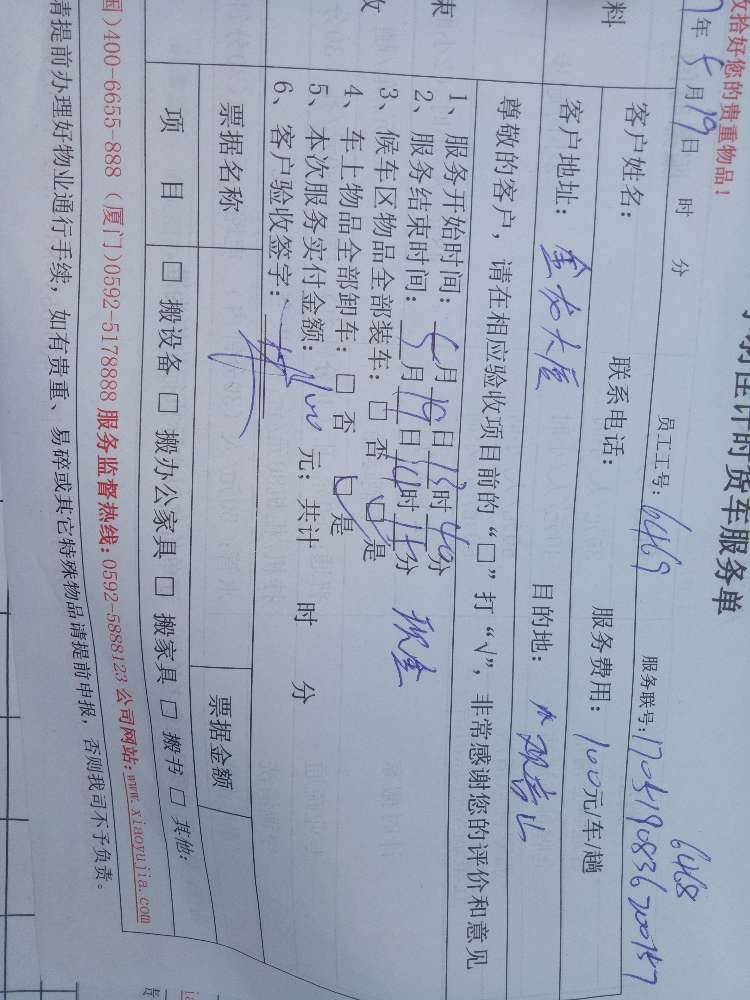 收拾好您的贵重物品!
时货车服务单
员工工号: 6469 6468
服务联号: 1705190836200157
年 5 月 19 日 时 分
客户姓名: 联系电话: 服务费用: 100元/车/趟
客户地址: 金龙大厦 目的地:
料
尊敬的客户, 请在相应验收项目前的 “□” 打 “√”, 非常感谢您的评价和意见
束
1、服务开始时间: 5月19日13时40分
2、服务结束时间: 5月19日14时15分 现金
3、候车区物品全部装车: □ 否 □ 是
4、车上物品全部卸车: □ 否 □ 是
5、本次服务实付金额: 100 元; 共计 时 分
6、客户验收签字:
收
票据名称 票据金额
项 目 □ 搬设备 □ 搬办公家具 □ 搬家具 □ 搬书 □ 其他:
国) 400-6655-888 (厦门)0592-5178888 服务监督热线: 0592-5888123 公司网站: www.xiaoyujia.com
请提前办理好物业通行手续, 如有贵重、易碎或其它特殊物品请提前申报, 否则我司不予负责。